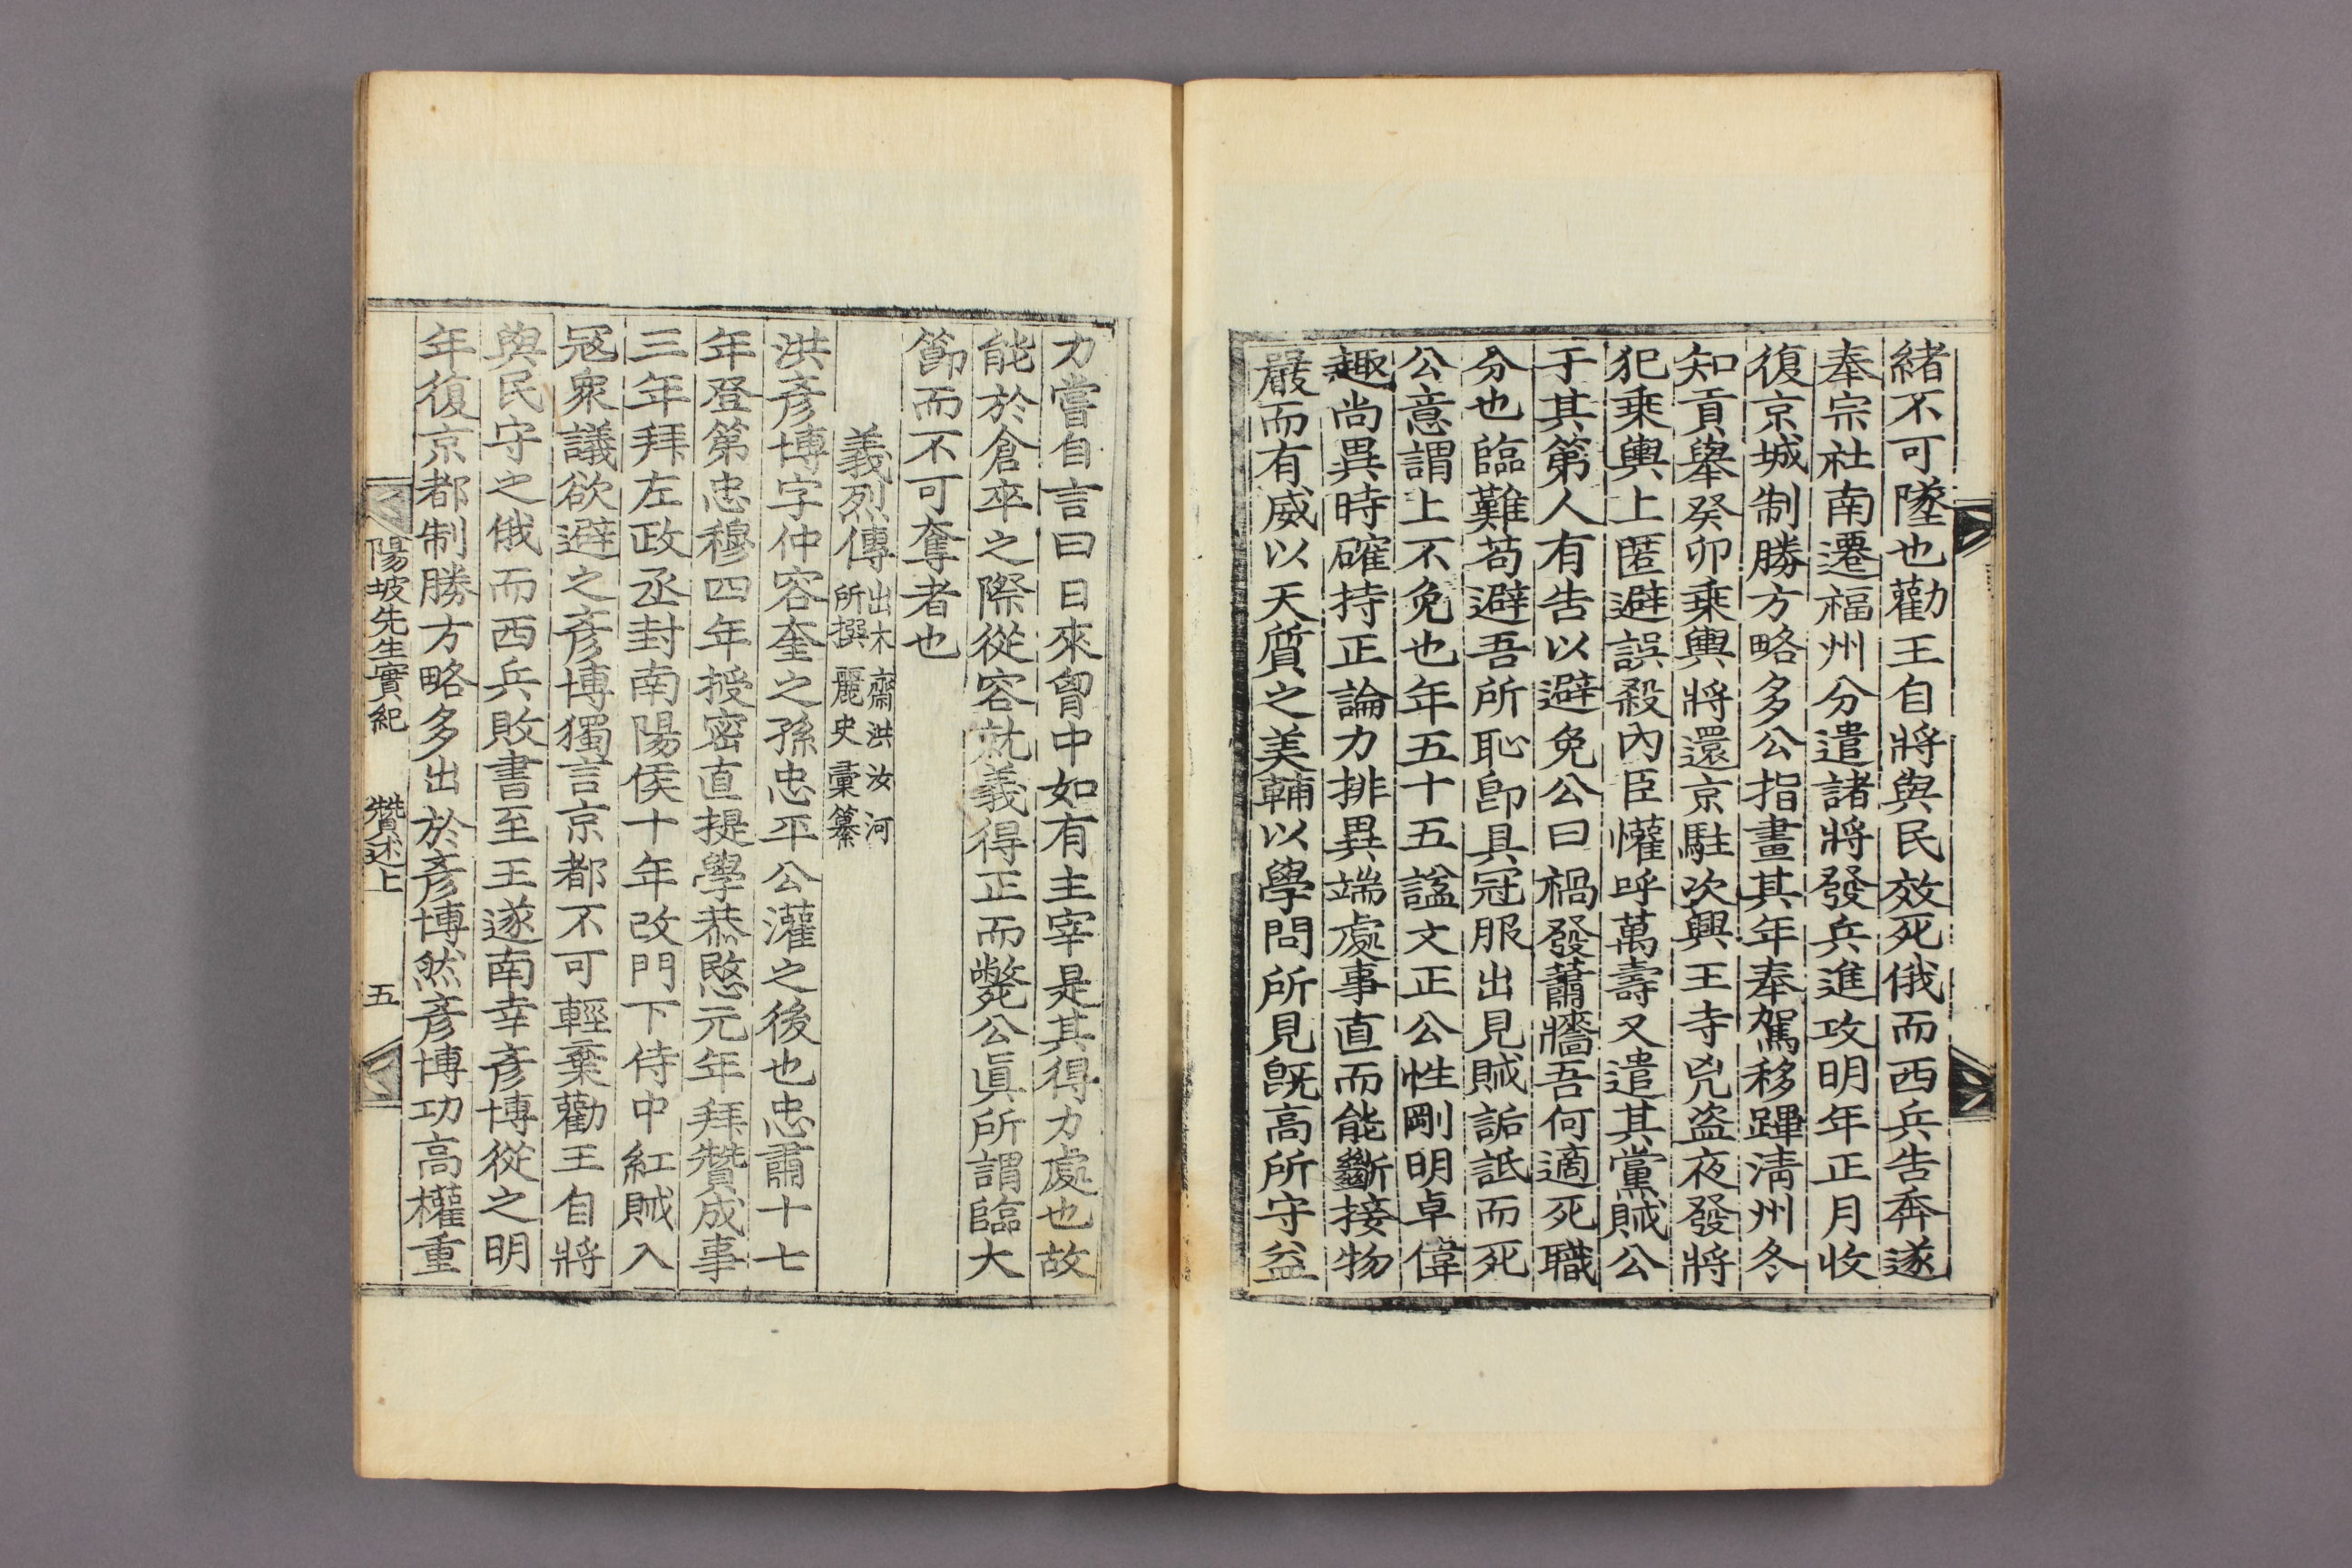 緒不可墜也勸王自將與民效死俄而西兵告奔遂
奉宗社南遷福州分遣諸將發兵進攻明年正月收
復京城制勝方略多公指畫其年奉駕移蹕淸州冬
知貢擧癸卯乘輿將還京駐次興王寺兇盜夜發將
犯乘輿上匿避誤殺內臣懽呼萬壽又遣其黨賊公
于其第人有告以避免公曰禍發蕭牆吾何適死職
分也臨難苟避吾所恥卽具冠服出見賊詬詆而死
公意謂上不免也年五十五諡文正公性剛明卓偉
趣尚異時確持正論力排異端處事直而能斷接物
嚴而有威以天質之美輔以學問所見旣高所守益
力嘗自言曰日來胷中如有主宰是其得力處也故
能於倉卒之際從容就義得正而斃公眞所謂臨大
節而不可奪者也
義烈傳 出木齋洪汝河
所撰麗史彙纂
洪彦博字仲容奎之孫忠平公灌之後也忠肅十七
年登第忠穆四年授密直提學恭愍元年拜贊成事
三年拜左政丞封南陽侯十年改門下侍中紅賊入
冦衆議欲避之彦博獨言京都不可輕棄勸王自將
與民守之俄而西兵敗書至王遂南幸彦博從之明
年復京都制勝方略多出於彦博然彦博功高權重
陽坡先生實紀 贊述上 五